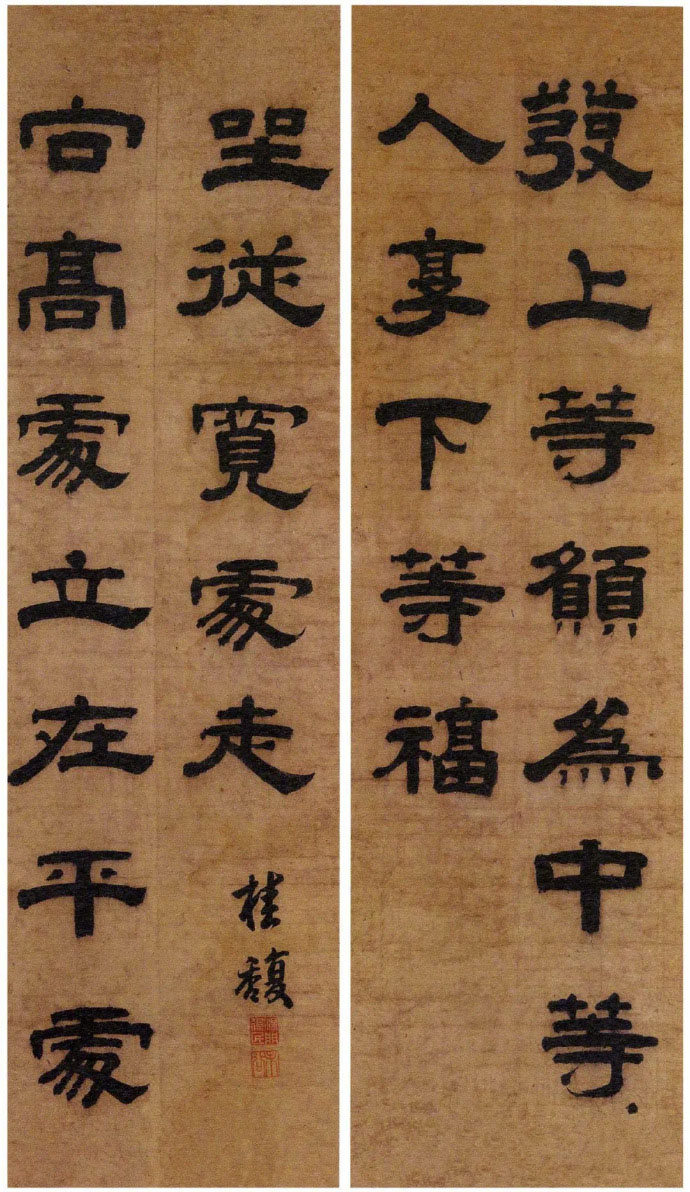 發上等願爲中等
人享下等福
向髙處立在平處
坐從寬處走
桂馥